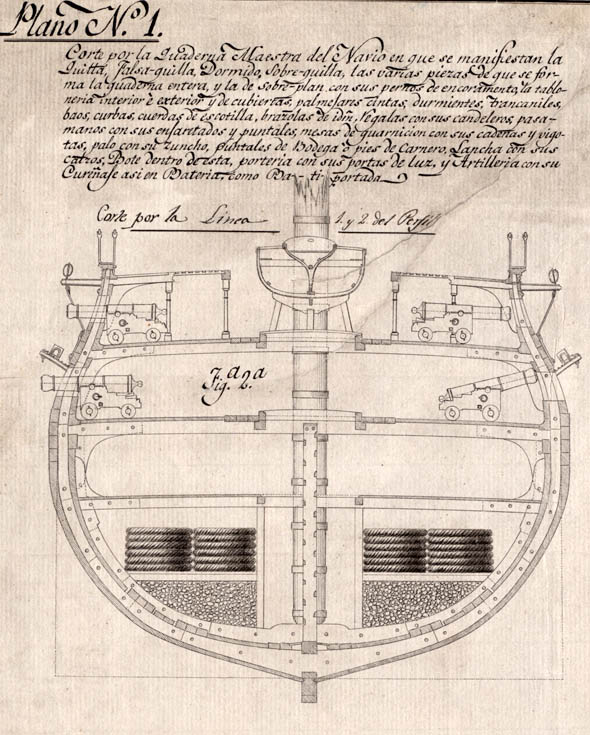 Plano N.º 1.
Corte por la Quaderna Maestra del Navio en que se manifiestan la
Quilla, falsa-quilla, Dormido, Sobre-quilla, las varias piezas de que se for-
ma la quaderna entera, y la de sobre-plan con sus pernos de encoramento, la tablo-
neria interior è exterior y de cubiertas, palmejares cintas, durmientes, trancaniles,
baos, curbas, cuerdas de escotilla, brazolas de idm, regalas con sus candeleros, pasa-
manos con sus enjaretados y puntales, mesas de guarnicion con sus cadenas y vigo-
tas, palo con su zuncho, puntales de Bodega è pies de Carnero, Lancha con sus
calzos, Bote dentro de esta, porteria con sus portas de luz, y Artilleria con su
Cureñaje asi en Bateria como Ba-ti-portada
Corte por la Linea 1. y 2. del Perfil
Fig.ª 2.ª